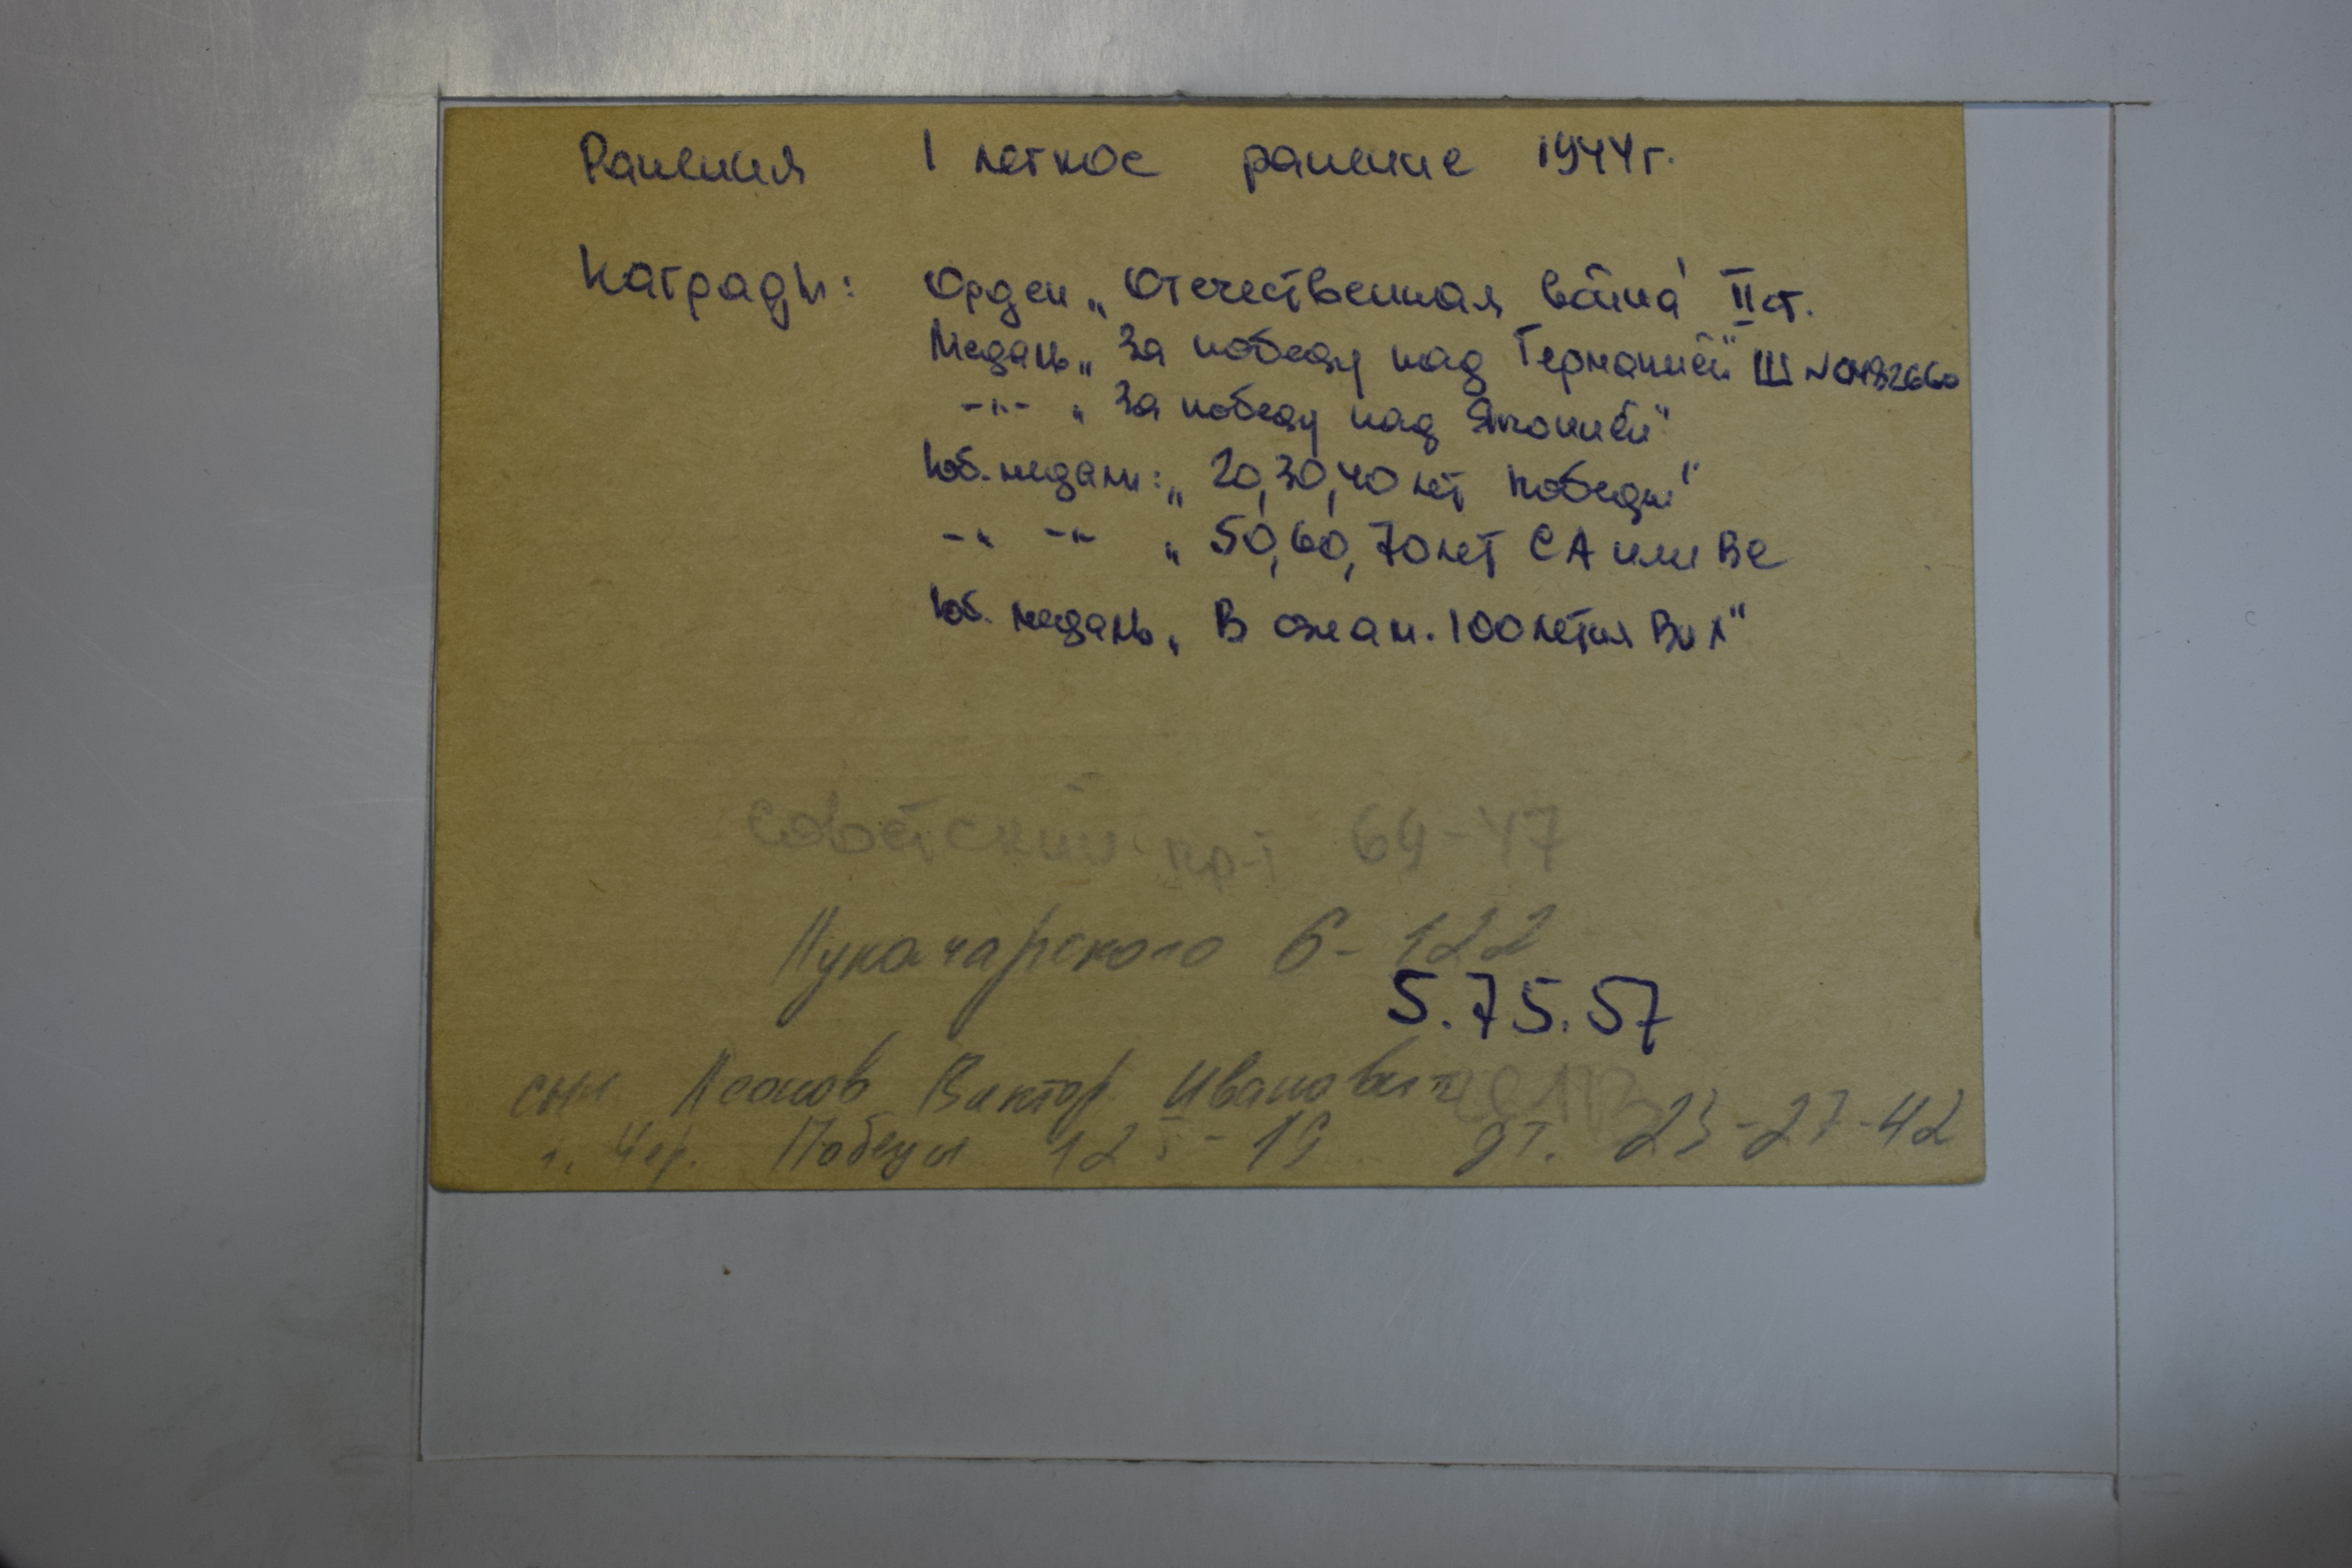 Ранения 1 легкое ранение 1944г.
Награды: Орден „Отечественная война" II ст.
Медаль „За победу над Германией" Ш №0482660
-"- „За победу над Японией"
Юб. медали: „20, 30, 40 лет Победы"
-"- -"- „50, 60, 70 лет СА или ВС
Юб. медаль „В ознам. 100летия ВИЛ"
Советский пр-т 69-47
Луначарского 6-122
5.75.57
сын Леонов Виктор Иванович
г. Чер. Победы 12 - 19 дт. 23-27-42